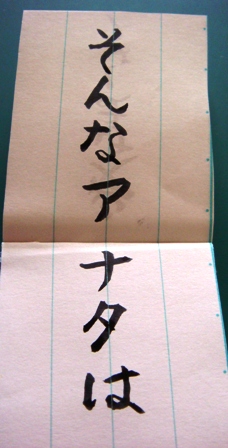 そんなアナタは